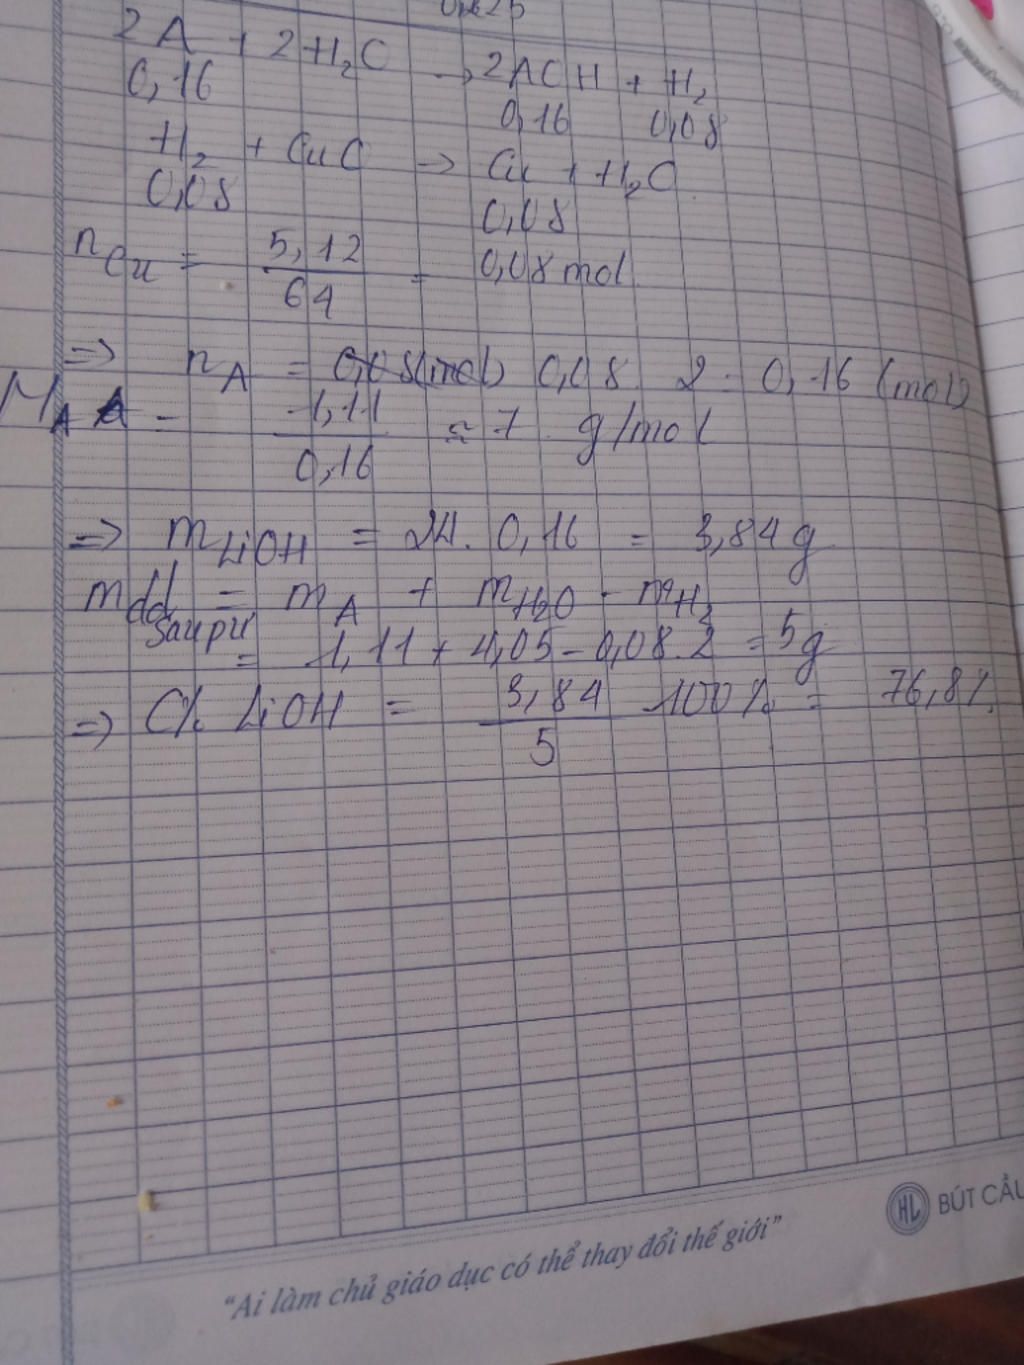 2A + 2H₂O → 2AOH + H₂
0,16 0,16 0,08
H₂ + CuO → Cu + H₂O
0,08 0,08
nCu = 5,12 / 64 = 0,08 mol
=> nA = 0,08(mol) 0,08 . 2 = 0,16 (mol)
MA = 1,11 / 0,16 ≈ 7 g/mol
=> mLiOH = 24. 0,16 = 3,84 g
mdd sau pư = mA + mH₂O - mH₂
= 1,11 + 4,05 - 0,08.2 = 5g
=> C% LiOH = 3,84 / 5 100% = 76,8%
HL BÚT
“Ai làm chủ giáo dục có thể thay đổi thế giới”